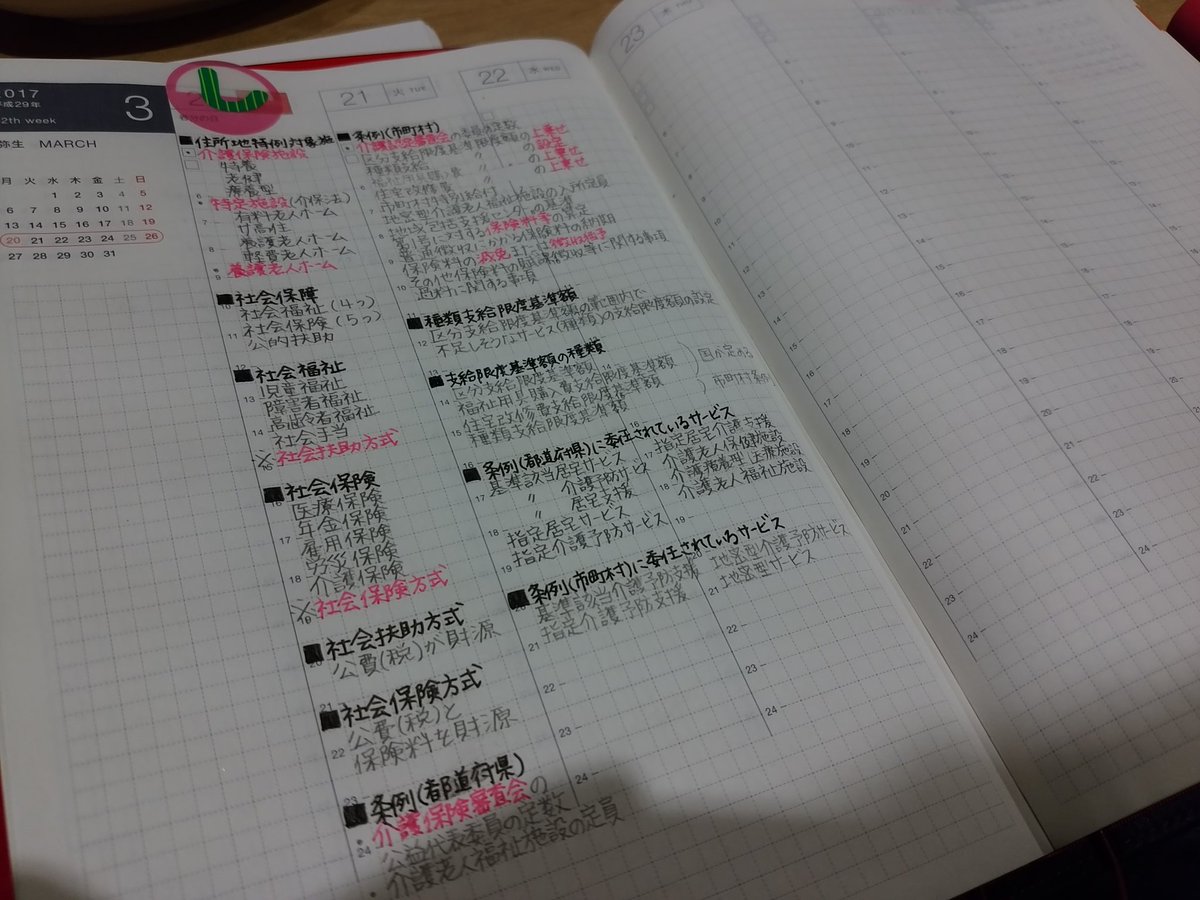 2017
平成29年
12th week
3
弥生 MARCH
月 火 水 木 金 土 日
1 2 3 4 5
6 7 8 9 10 11 12
13 14 15 16 17 18 19
20 21 22 23 24 25 26
27 28 29 30 31
し
■住所地特例対象施
・介護保険施設
特養
老健
療養型
・特定施設(介保法)
有料老人ホーム
サ高住
養護老人ホーム
軽費老人ホーム
・養護老人ホーム
■社会保障
社会福祉(4つ)
社会保険(5つ)
公的扶助
■社会福祉
児童福祉
障害者福祉
高齢者福祉
社会手当
※社会扶助方式
■社会保険
医療保険
年金保険
雇用保険
労災保険
介護保険
※社会保険方式
■社会扶助方式
公費(税)が財源
■社会保険方式
公費(税)と
保険料を財源
■条例(都道府県)
・介護保険審査会の
公益代表委員の定数
・介護老人福祉施設の定員
21 火 TUE
■条例(市町村)
・介護認定審査会の委員の定数
区分支給限度基準額の上乗せ
種類支給 〃 の設定
〃 の上乗せ
住宅改修費 〃 の上乗せ
市町村特別給付
地密型介護老人福祉施設の入所定員
地域包括支援センターの基準
第1号に対する保険料率の算定
普通徴収にかかる保険料の納期
保険料の減免または徴収猶予
その他保険料の賦課徴収等に関する事項
過料に関する事項
■種類支給限度基準額
区分支給限度基準額の範囲内で
不足しそうなサービス(種類)の支給限度額の設定
■支給限度基準額の種類
区分支給限度基準額
福祉用具購入費支給限度基準額
住宅改修費支給限度基準額
国が定める
種類支給限度基準額
市町村条例
■条例(都道府県)に委任されているサービス
基準該当居宅サービス
〃 介護予防サービス
〃 居宅支援
指定居宅サービス
指定介護予防サービス
指定居宅介護支援
介護老人保健施設
介護療養型医療施設
介護老人福祉施設
■条例(市町村)に委任されているサービス
基準該当介護予防支援
指定介護予防支援
地密型介護予防サービス
地密型サービス
22 水 WED
23 木 THU